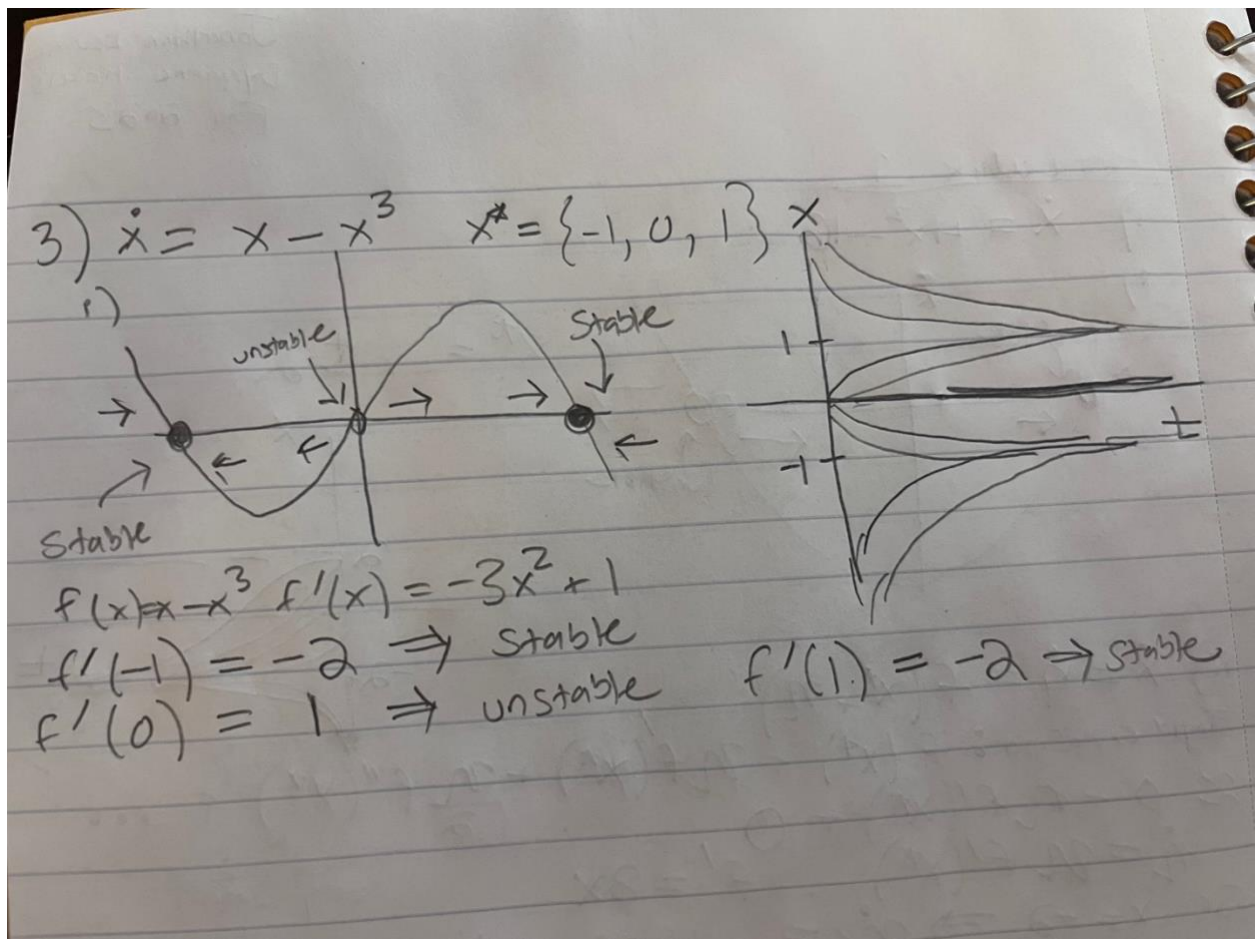 3) ẋ = x − x³   x* = {-1, 0, 1}
1)
unstable
Stable
Stable
x
1
-1
t
f(x)=x−x³ f'(x) = -3x² + 1
f'(-1) = -2 ⇒ stable
f'(0) = 1 ⇒ unstable
f'(1) = -2 → stable